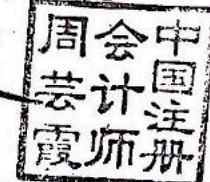 中国注册
会计师
周芸霞